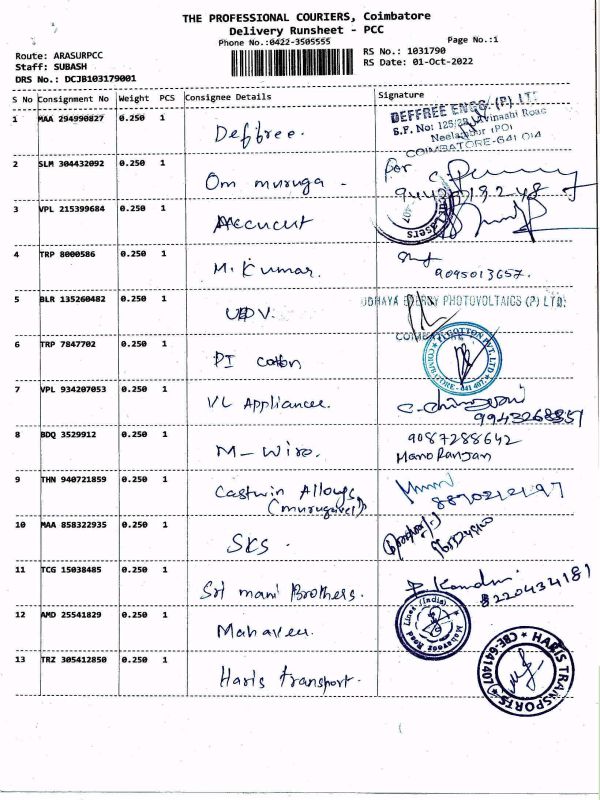 THE PROFESSIONAL COURIERS, Coimbatore
Delivery Runsheet - PCC
Phone No.:0422-3505555
Page No.:1
Route: ARASURPCC
RS No.: 1031790
Staff: SUBASH
RS Date: 01-Oct-2022
DRS No.: DCJB103179001
S No Consignment No Weight PCS Consignee Details Signature
1 MAA 294990827 0.250 1 Deffree.
DEFFREE ENGG (P) LTD
S.F. No: 125/2B, Avinashi Road
Neelambur (PO)
COIMBATORE-641 014
2 SLM 304432092 0.250 1 Om muruga -
For
3 VPL 215399684 0.250 1 Accucut
4 TRP 8000586 0.250 1 M. Kumar.
9095013657.
5 BLR 135260482 0.250 1 UPV.
UDHAYA ENERGY PHOTOVOLTAICS (P) LTD.
COIMBATORE
6 TRP 7847702 0.250 1 PI cotton
PI COTTON PVT. LTD
COIMBATORE - 641 407.
7 VPL 934207053 0.250 1 VL Appliances.
9943268851
8 BDQ 3529912 0.250 1 M-Wiro.
9087288642
Mano Ranjan
9 THN 940721859 0.250 1 Castwin Alloys
(murugavel)
10 MAA 858322935 0.250 1 SKS.
11 TCG 15038485 0.250 1 Sri mani Brothers.
8220434181
12 AMD 25541829 0.250 1 Mahaveer.
Mahaveer Road Lines (India)
13 TRZ 305412850 0.250 1 Haris transport.
HARIS TRANSPORTS
CBE-641407